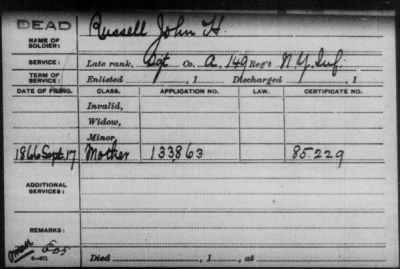 DEAD
NAME OF SOLDIER: Russell John H.
SERVICE: Late rank, Sgt Co. A, 149 Reg't N.Y. Inf.
TERM OF SERVICE: Enlisted , 1 Discharged , 1
DATE OF FILING. CLASS. APPLICATION NO. LAW. CERTIFICATE NO.
Invalid,
Widow,
Minor,
1866 Sept. 17 Mother 133,863 85.229
ADDITIONAL SERVICES:
REMARKS:
Died , 1 , at